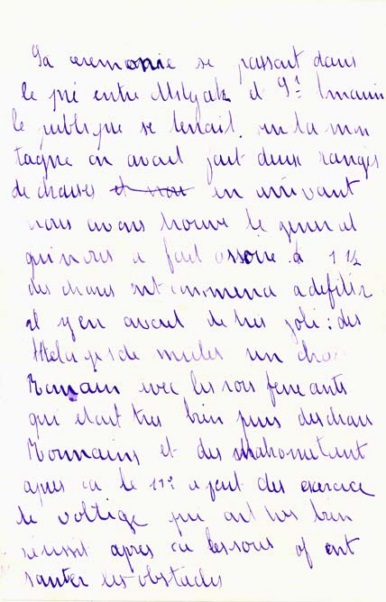 La ceremonie se passait dans
le pré entre Mslyak et St Imanin
le publique se tenait sur la mon
tagne on avait fait deux rangés
de chaises et nou en arrivant
nous avons trouve le general
qui nous a fait assoire à 1 ½
des chares ont commenca a defiler
il y en avait de tres joli : des
de mules un char
Romain avec les rois feneants
qui etait tres bien puis des chars
Rommains et des mahometant
apres ca le 11e a fait des exercice
de voltige qui ont tres bien
réussit apres ca les sous of ont
sauter les obstacles